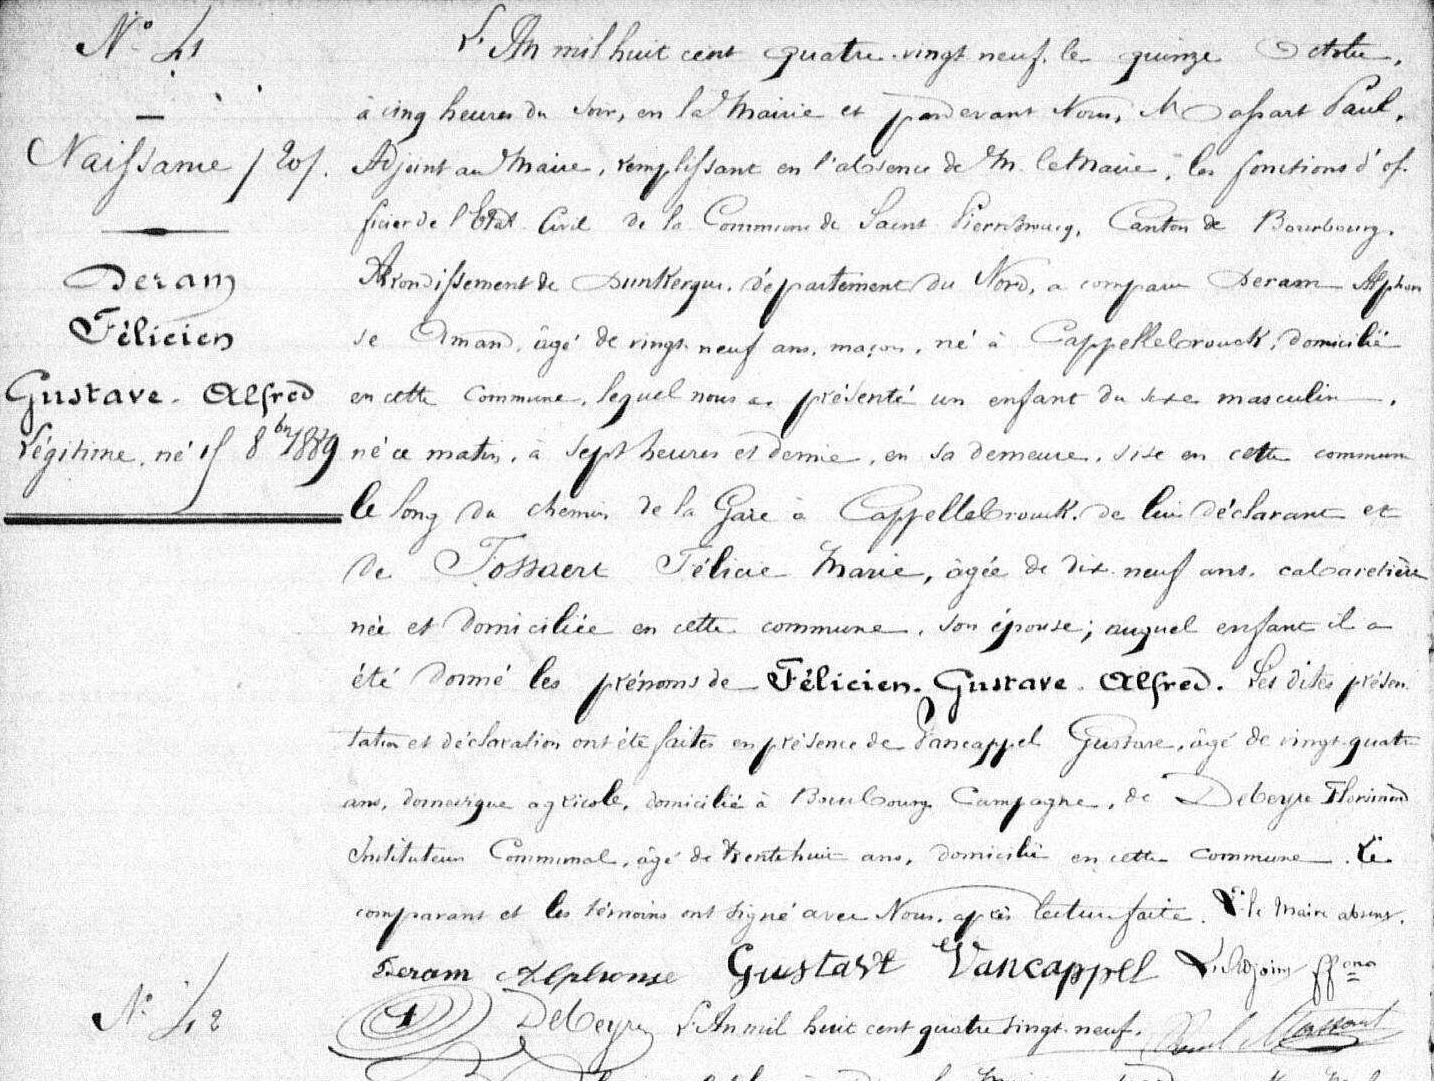 N° 41
Naissance / 20f.
Deram
Félicien
Gustave. Alfred
Légitime. né 15 8bre 1889
L'An mil huit cent quatre-vingt neuf. le quinze Octobre,
à cinq heures du soir, en la Mairie et pardevant Nous, Massart Paul,
Adjoint au Maire, remplissant en l'absence de M. le Maire, les fonctions d'of-
ficier de l'Etat Civil de la Commune de Saint Pierrebroucq, Canton de Bourbourg.
Arrondissement de Dunkerque, département du Nord, a comparu Deram Alphon
se Amand, âgé de vingt neuf ans, maçon, né à Cappellebrouck, domicilié
en cette commune, lequel nous a présenté un enfant du sexe masculin,
né ce matin, à sept heures et demie, en sa demeure, sise en cette commune
le long du chemin de la Gare à Cappellebrouck. de lui déclarant et
de Tossaert Félicie Marie, âgée de dix neuf ans, cabaretière
née et domiciliée en cette commune, son épouse; auquel enfant il a
été donné les prénoms de Félicien. Gustave. Alfred. Les dites présen
tation et déclaration ont été faites en présence de Vancappel Gustave, âgé de vingt-quatre
ans, domestique agricole, domicilié à Bourbourg Campagne, de Debeyre Florimond
Instituteur Communal, âgé de trente huit ans, domicilié en cette commune. Le
comparant et les témoins ont signé avec Nous, après lecture faite. Pr le Maire absent,
Deram Alphonse Gustave Vancappel L'Adjoint ff.ons
Debeyre Paul Massart
N° 42
L'An mil huit cent quatre vingt neuf.